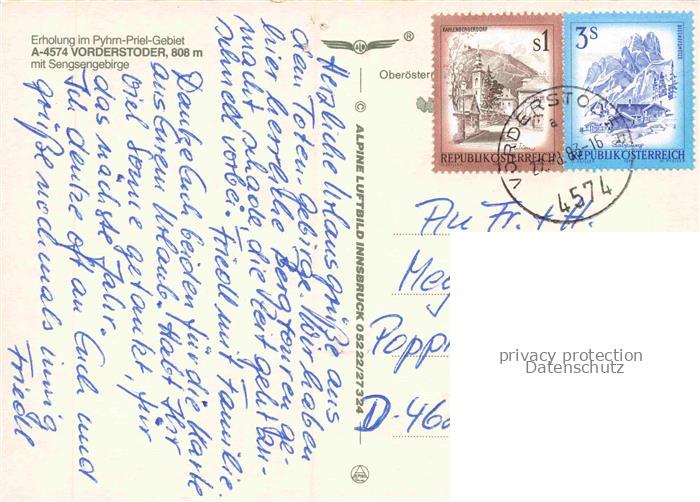 Erholung im Pyhrn-Priel-Gebiet
A-4574 VORDERSTODER, 808 m
mit Sengsengebirge
®
Oberöster
KAHLENBERGERDORF
s1
REPUBLIK ÖSTERREICH
3s
REPUBLIK ÖSTERREICH
VORDERSTO
a
83-16
4574
© ALPINE LUFTBILD INNSBRUCK 05222/27324
Herzliche Urlausgrüße aus
dem Toten-Gebirge. Wir haben
hier herrliche Bergtouren ge-
macht. Schade, die Zeit geht all-
schnell vorbei. Friedl mit Familie.
Danke Euch beiden für die Karte
aus Eurem Urlaub. Habt Ihr
viel Sonne getankt, für
das nächste Jahr.
Ich denke oft an Euch und
grüße nochmals innig
Friedl
An Fr. + H.
Mey
Popp
D-46
privacy protection
Datenschutz